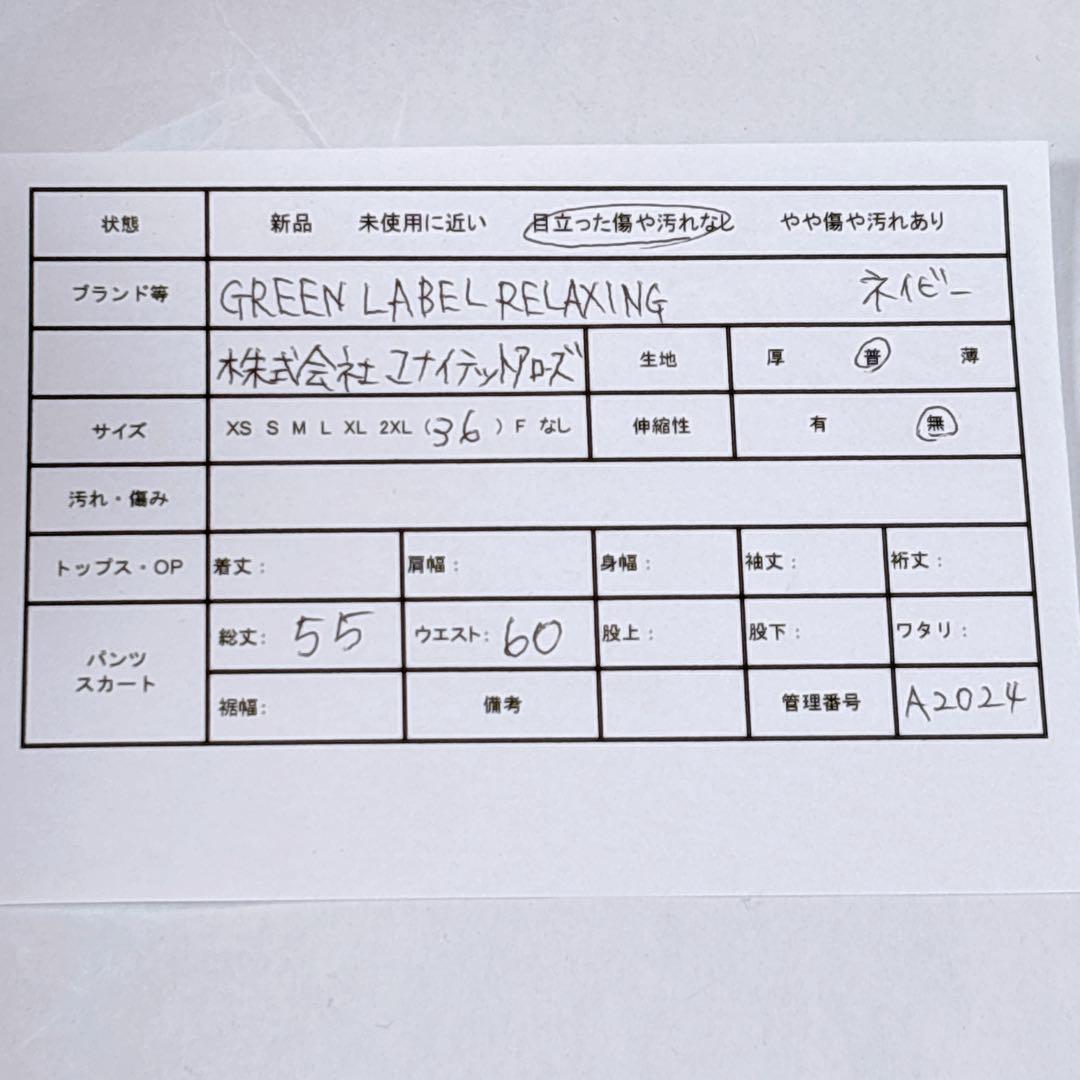 状態 新品 未使用に近い 目立った傷や汚れなし やや傷や汚れあり
ブランド等 GREEN LABEL RELAXING ネイビー
株式会社ユナイテッドアローズ 生地 厚 普 薄
サイズ XS S M L XL 2XL (36) F なし 伸縮性 有 無
汚れ・傷み
トップス・OP 着丈: 肩幅: 身幅: 袖丈: 裄丈:
パンツ
スカート
総丈: 55 ウエスト: 60 股上: 股下: ワタリ:
裾幅: 備考 管理番号 A2024